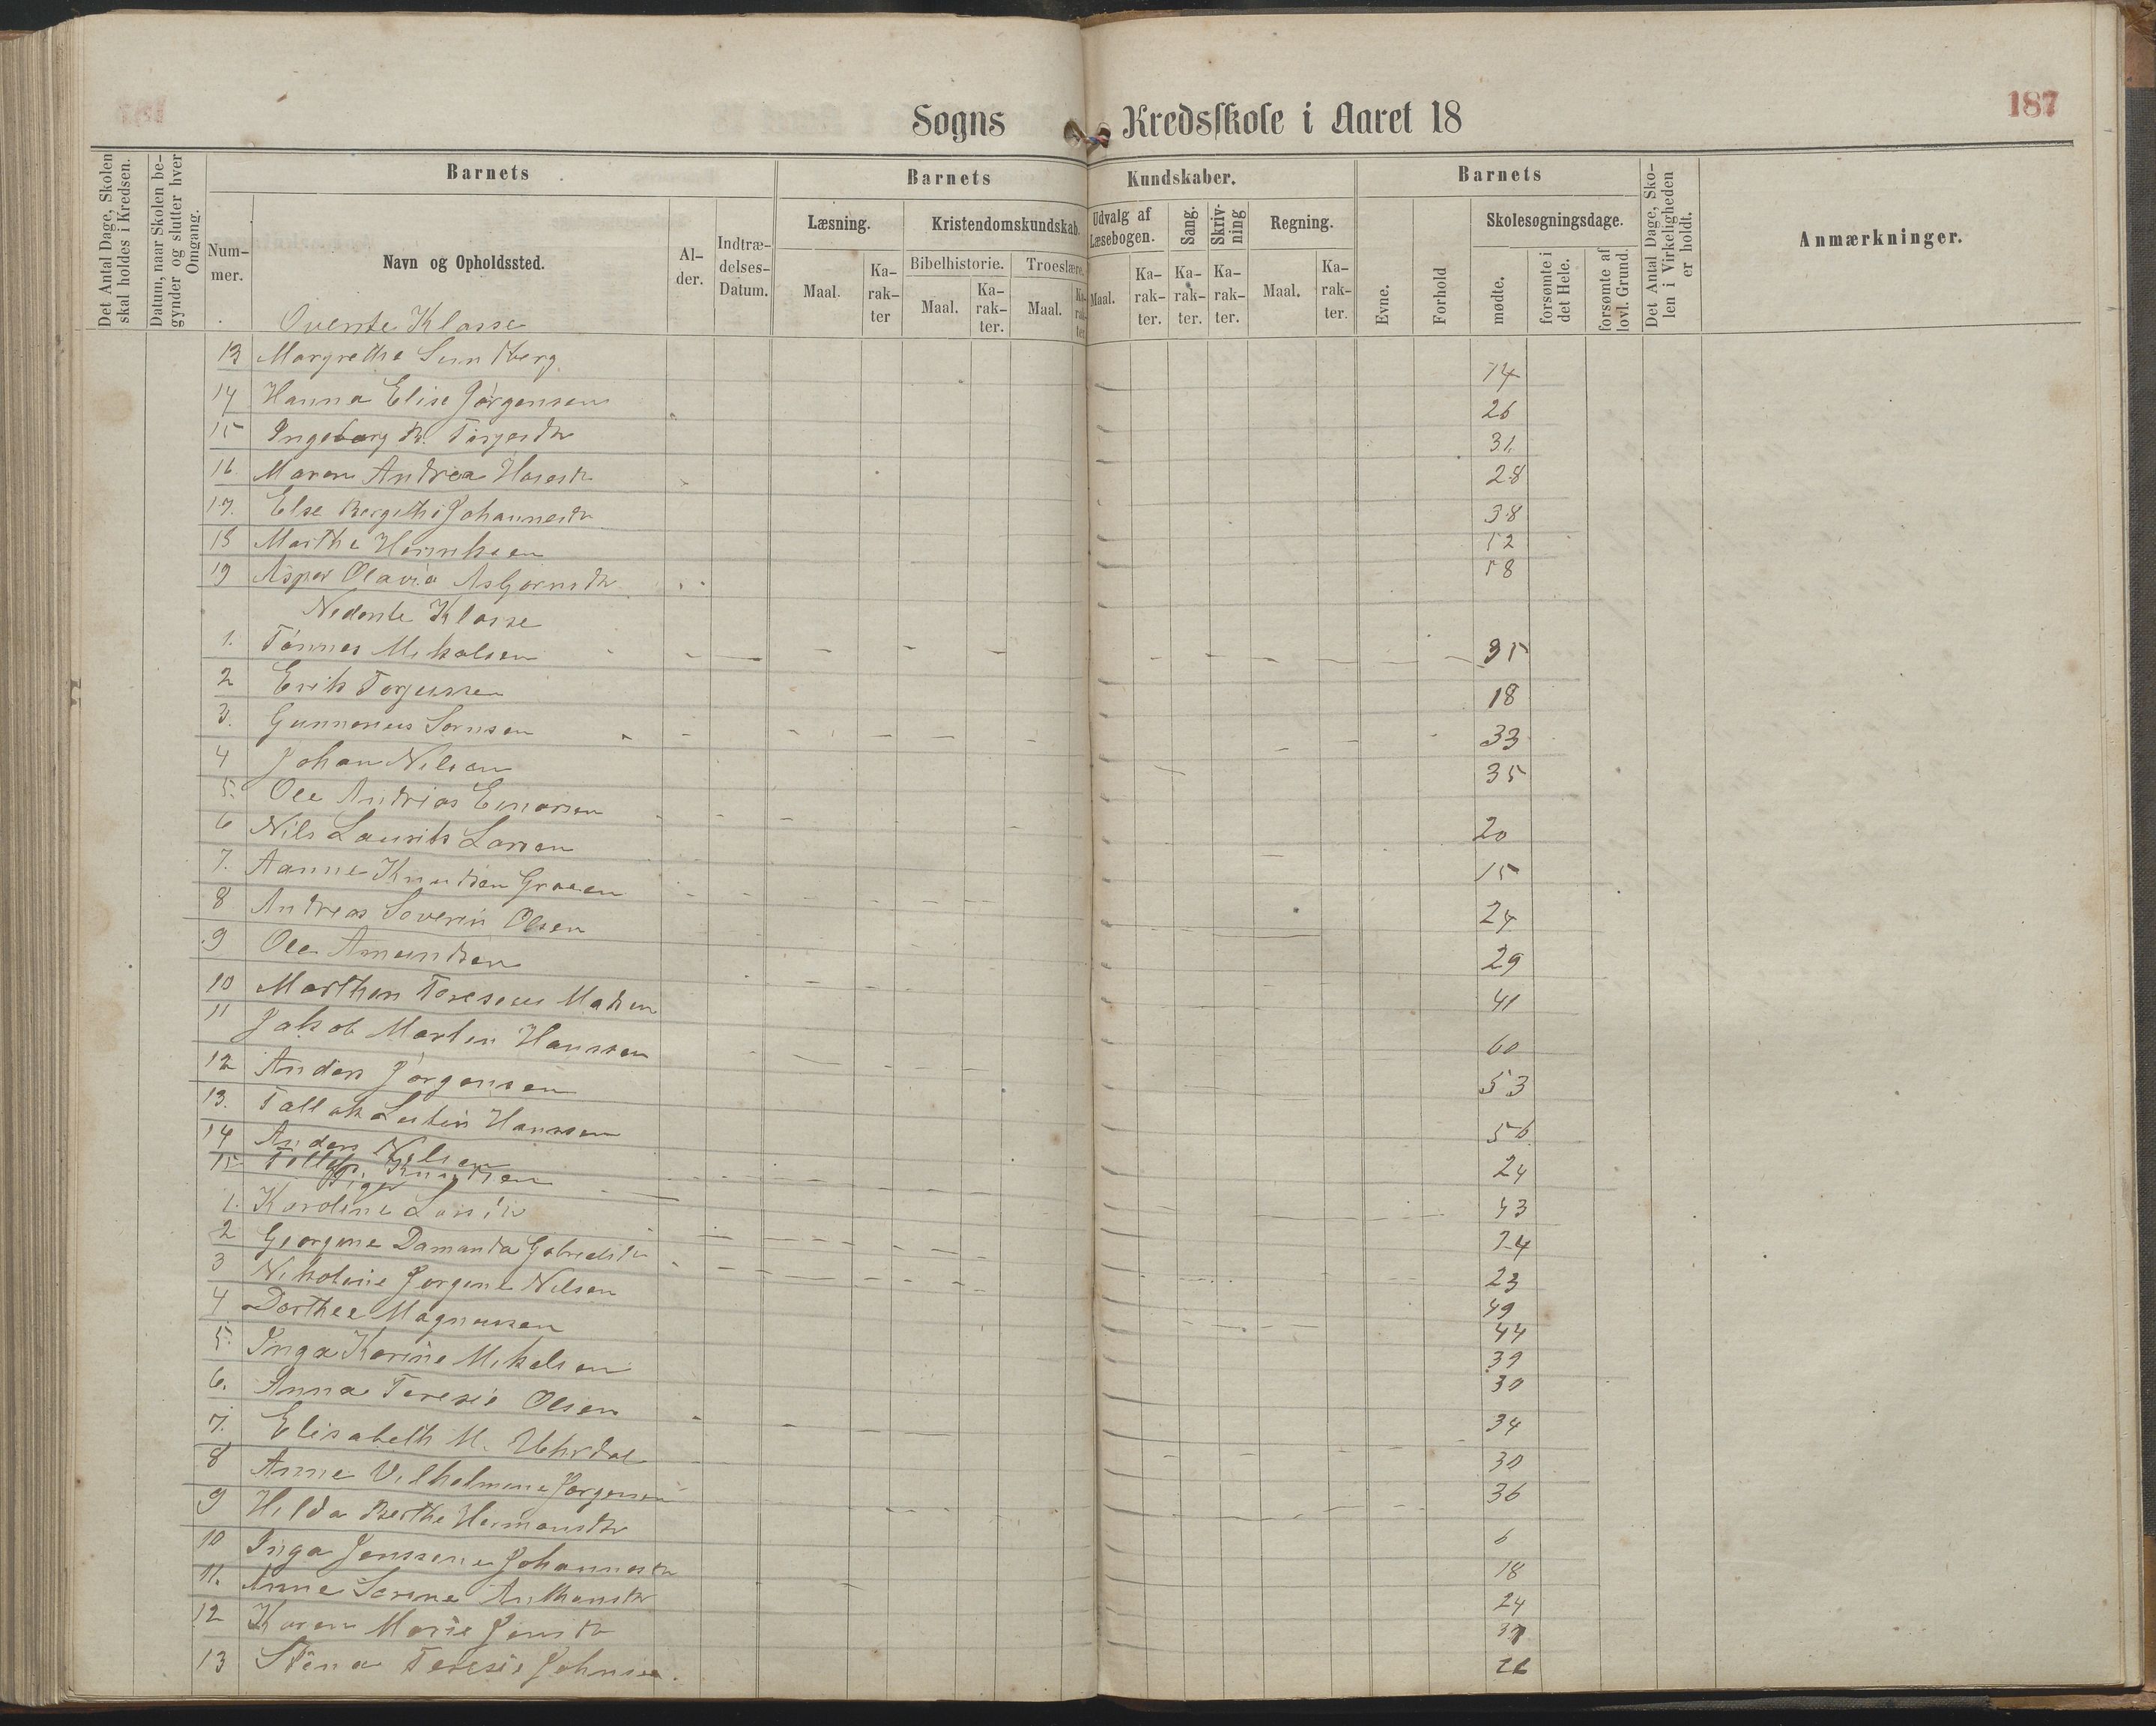 187
Sogns Kredsskole i Aaret 18
Det Antal Dage, Skolen skal holdes i Kredsen.
Datum, naar Skolen begynder og slutter hver Omgang.
Barnets
Nummer.
Navn og Opholdssted.
Alder.
Indtrædelses-Datum.
Barnets Kundskaber.
Læsning.
Maal.
Karakter
Kristendomskundskab.
Bibelhistorie.
Maal.
Karakter.
Troeslære.
Maal.
Karakter.
Udvalg af Læsebogen.
Maal.
Karakter.
Sang.
Karakter.
Skrivning
Karakter.
Regning.
Maal.
Karakter.
Barnets
Evne.
Forhold
Skolesøgningsdage.
mødte.
forsømte i det Hele.
forsømte af lovl. Grund.
Det Antal Dage, Skolen i Virkeligheden er holdt.
Anmærkninger.
Øverste Klasse
13 Margrethe Sundberg 74
14 Hanna Elise Jørgensen 26
15 Ingeborg B. Torjesdtr 31
16. Maren Andrea 28
17. Else Bergithe Johannesdtr 38
18 Marthe 52
19 Asper Olavia Asbjørnsdtr 58
Nederste Klasse
1. Tønnes Mikalsen 35
2 Erik Torjussen 18
3. Gunnerius Sørnsen 33
4 Johan Nilsen 35
5. Ole Andrias Einarsen 20
6 Nils Laurits Larsen 15
7. Aanne Knudsen Graaen 24
8 Andreas Severin Olsen 29
9 Ole Amundsen 41
10 Marthen Toresius Madsen 60
11 Jakob Martin Hanssen 53
12 Anders Jørgensen 56
13. Tallak Hanssen 24
14 Anders Nilsen 43
15 Knudsen
Piger
1. Karoline Larsdtr
2 Georgine Damanda Gabrielsdtr 23
3 Nikoline Jørgine Nilsen 49
4 Dorthee Magnussen 44
5. Inga Karine Mikalsen 39
6. Anna Teresie Olsen 30
7. Elisabeth M. 34
8 Anne Vilhelmine Jørgensen 30
9 Hilda Berthe Hermansdtr 36
10 Inga Jenssene Johannesdtr 6
11. Anne Serine 18
12 Karen Marie Jensdtr 24
13 Stina Teresie Johnsen